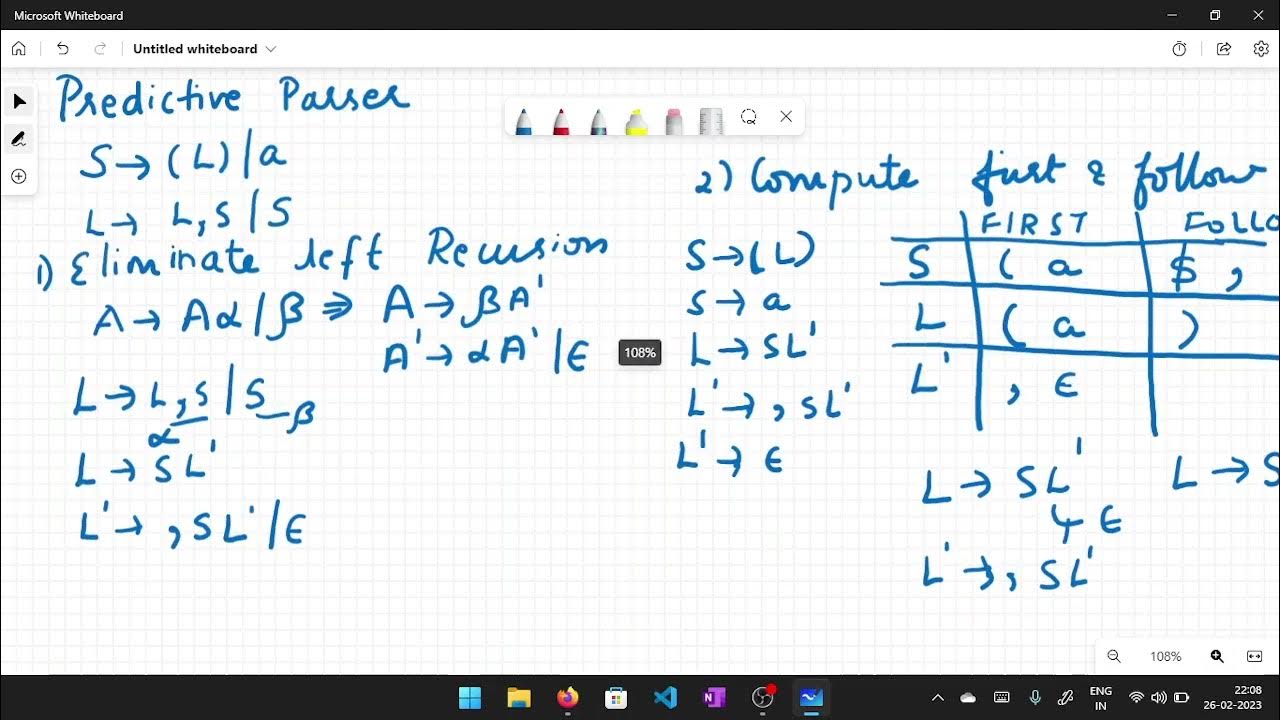 Microsoft Whiteboard
Untitled whiteboard
Predictive Parser
S → (L) | a
L → L,S | S
1) Eliminate left Recusion
A → Aα | β ⇒ A → βA'
A' → αA' | ε
L → L,S | S β
α
L → SL'
L' → ,SL' | ε
108%
2) Compute first & follow
S → (L)
S → a
L → SL'
L' → ,SL'
L' → ε
FIRST FOLLO
S ( a $ ,
L ( a )
L' , ε
L → SL' L → S
ε
L' → , SL'
108%
ENG
IN
22:08
26-02-2023